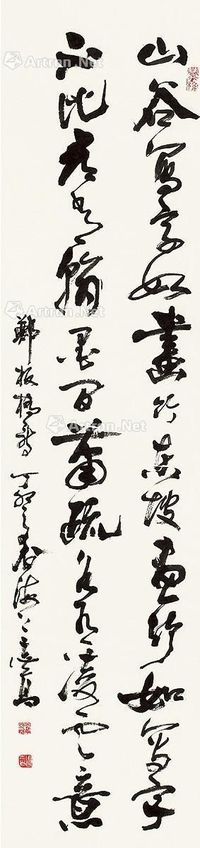 山谷寫字如畫竹東坡畫竹如寫字
不比尋常翰墨間蕭疏各有凌雲意
鄭板橋 丁卯之春海上
Artron.Net